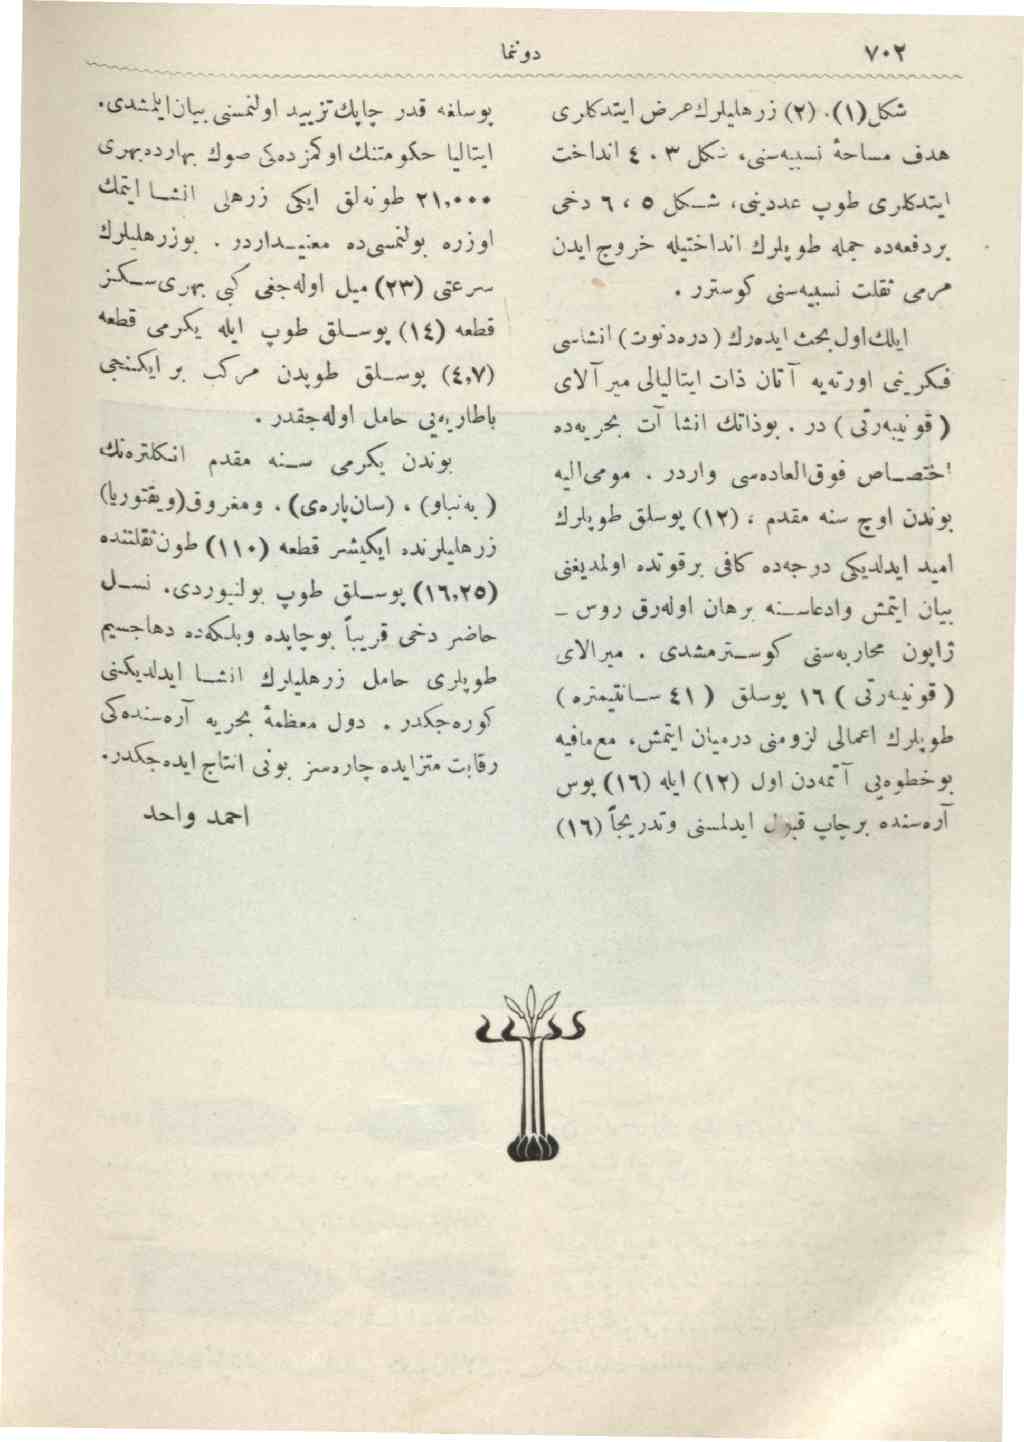 ٧٠٢
دوننما
شكل(١). (٢) زرهليلرك عرض ايتدكلری
هدف مساحهٔ نسبيه‌سنی، شكل ٣ ، ٤ انداخت
ايتدكلری طوپ عددينی، شــكل ٥ ، ٦ دخی
بردفعه‌ده جمله طوپلرك انداختيله خروج ايدن
مرمی ثقلت نسبيه‌سنی كوسترر .
ايلك‌اول بحث ايده‌رك (دره‌دنوت) انشاسی
فكرينی اورته‌يه آتان ذات ايتاليالی ميرآلای
( قونيبه‌رتی ) در . بوذاتك انشا آت بحريه‌ده
اختصــاص فوق‌العاده‌سی واردر . مومی‌اليه
بوندن اوچ سنه مقدم ، (١٢) پوسلق طوپلرك
اميد ايدلديكی درجه‌ده كافی برقوتده اولمديغنی
بيان ايتمش وادعاســنه برهان اوله‌رق روس ــ
ژاپون محاربه‌سنی كوســترمشدی . ميرالای
( قونيبه‌رتی ) ١٦ پوسلق ( ٤١ ســانتيمتره )
طوپلرك اعمالی لزومنی درميان ايتمش، مع‌مافيه
بوخطوه‌يی آتمه‌دن اول (١٢) ايله (١٦) پوس
آره‌سنده برچاپ قبول ايدلمسنی وتدريجاً (١٦)
پوسلغه قدر چاپك تزييد اولنمسنی بيان‌ايلمشدی.
ايتاليا حكومتنك اوكمزده‌كی صوك بهارده بهری
٢١,٠٠٠ طونه‌لق ايكی زرهلی انشــا ايتمك
اوزره بولنمسی‌ده معنيــداردر . بوزرهليلرك
سرعتی (٢٣) ميل اوله‌جغی كبی بهری ســكز
قطعه (١٤) پوســلق طوپ ايله يكرمی قطعه
(٤,٧) پوســلق طوپدن مركب بر ايكنجی
باطاريه‌يی حامل اوله‌جقدر .
بوندن يكرمی ســنه مقدم انكلتره‌نك
( به‌نباو) ، (سان‌پاره‌ی) . ومغروق(ويقتوريا)
زرهليلرنده ايكيشر قطعه (١١٠) طون‌ثقلتنده
(١٦,٢٥) پوســلق طوپ بولنيوردی. نســل
حاضر دخی قريباً بوچاپده وبلكه‌ده دهاجسيم
طوپلری حامل زرهليلرك انشــا ايدلديكنی
كوره‌جكدر . دول معظمهٔ بحريه آره‌سنده‌كی
رقابت متزايده چاره‌سز بونی انتاج ايده‌جكدر.
احمد واحد